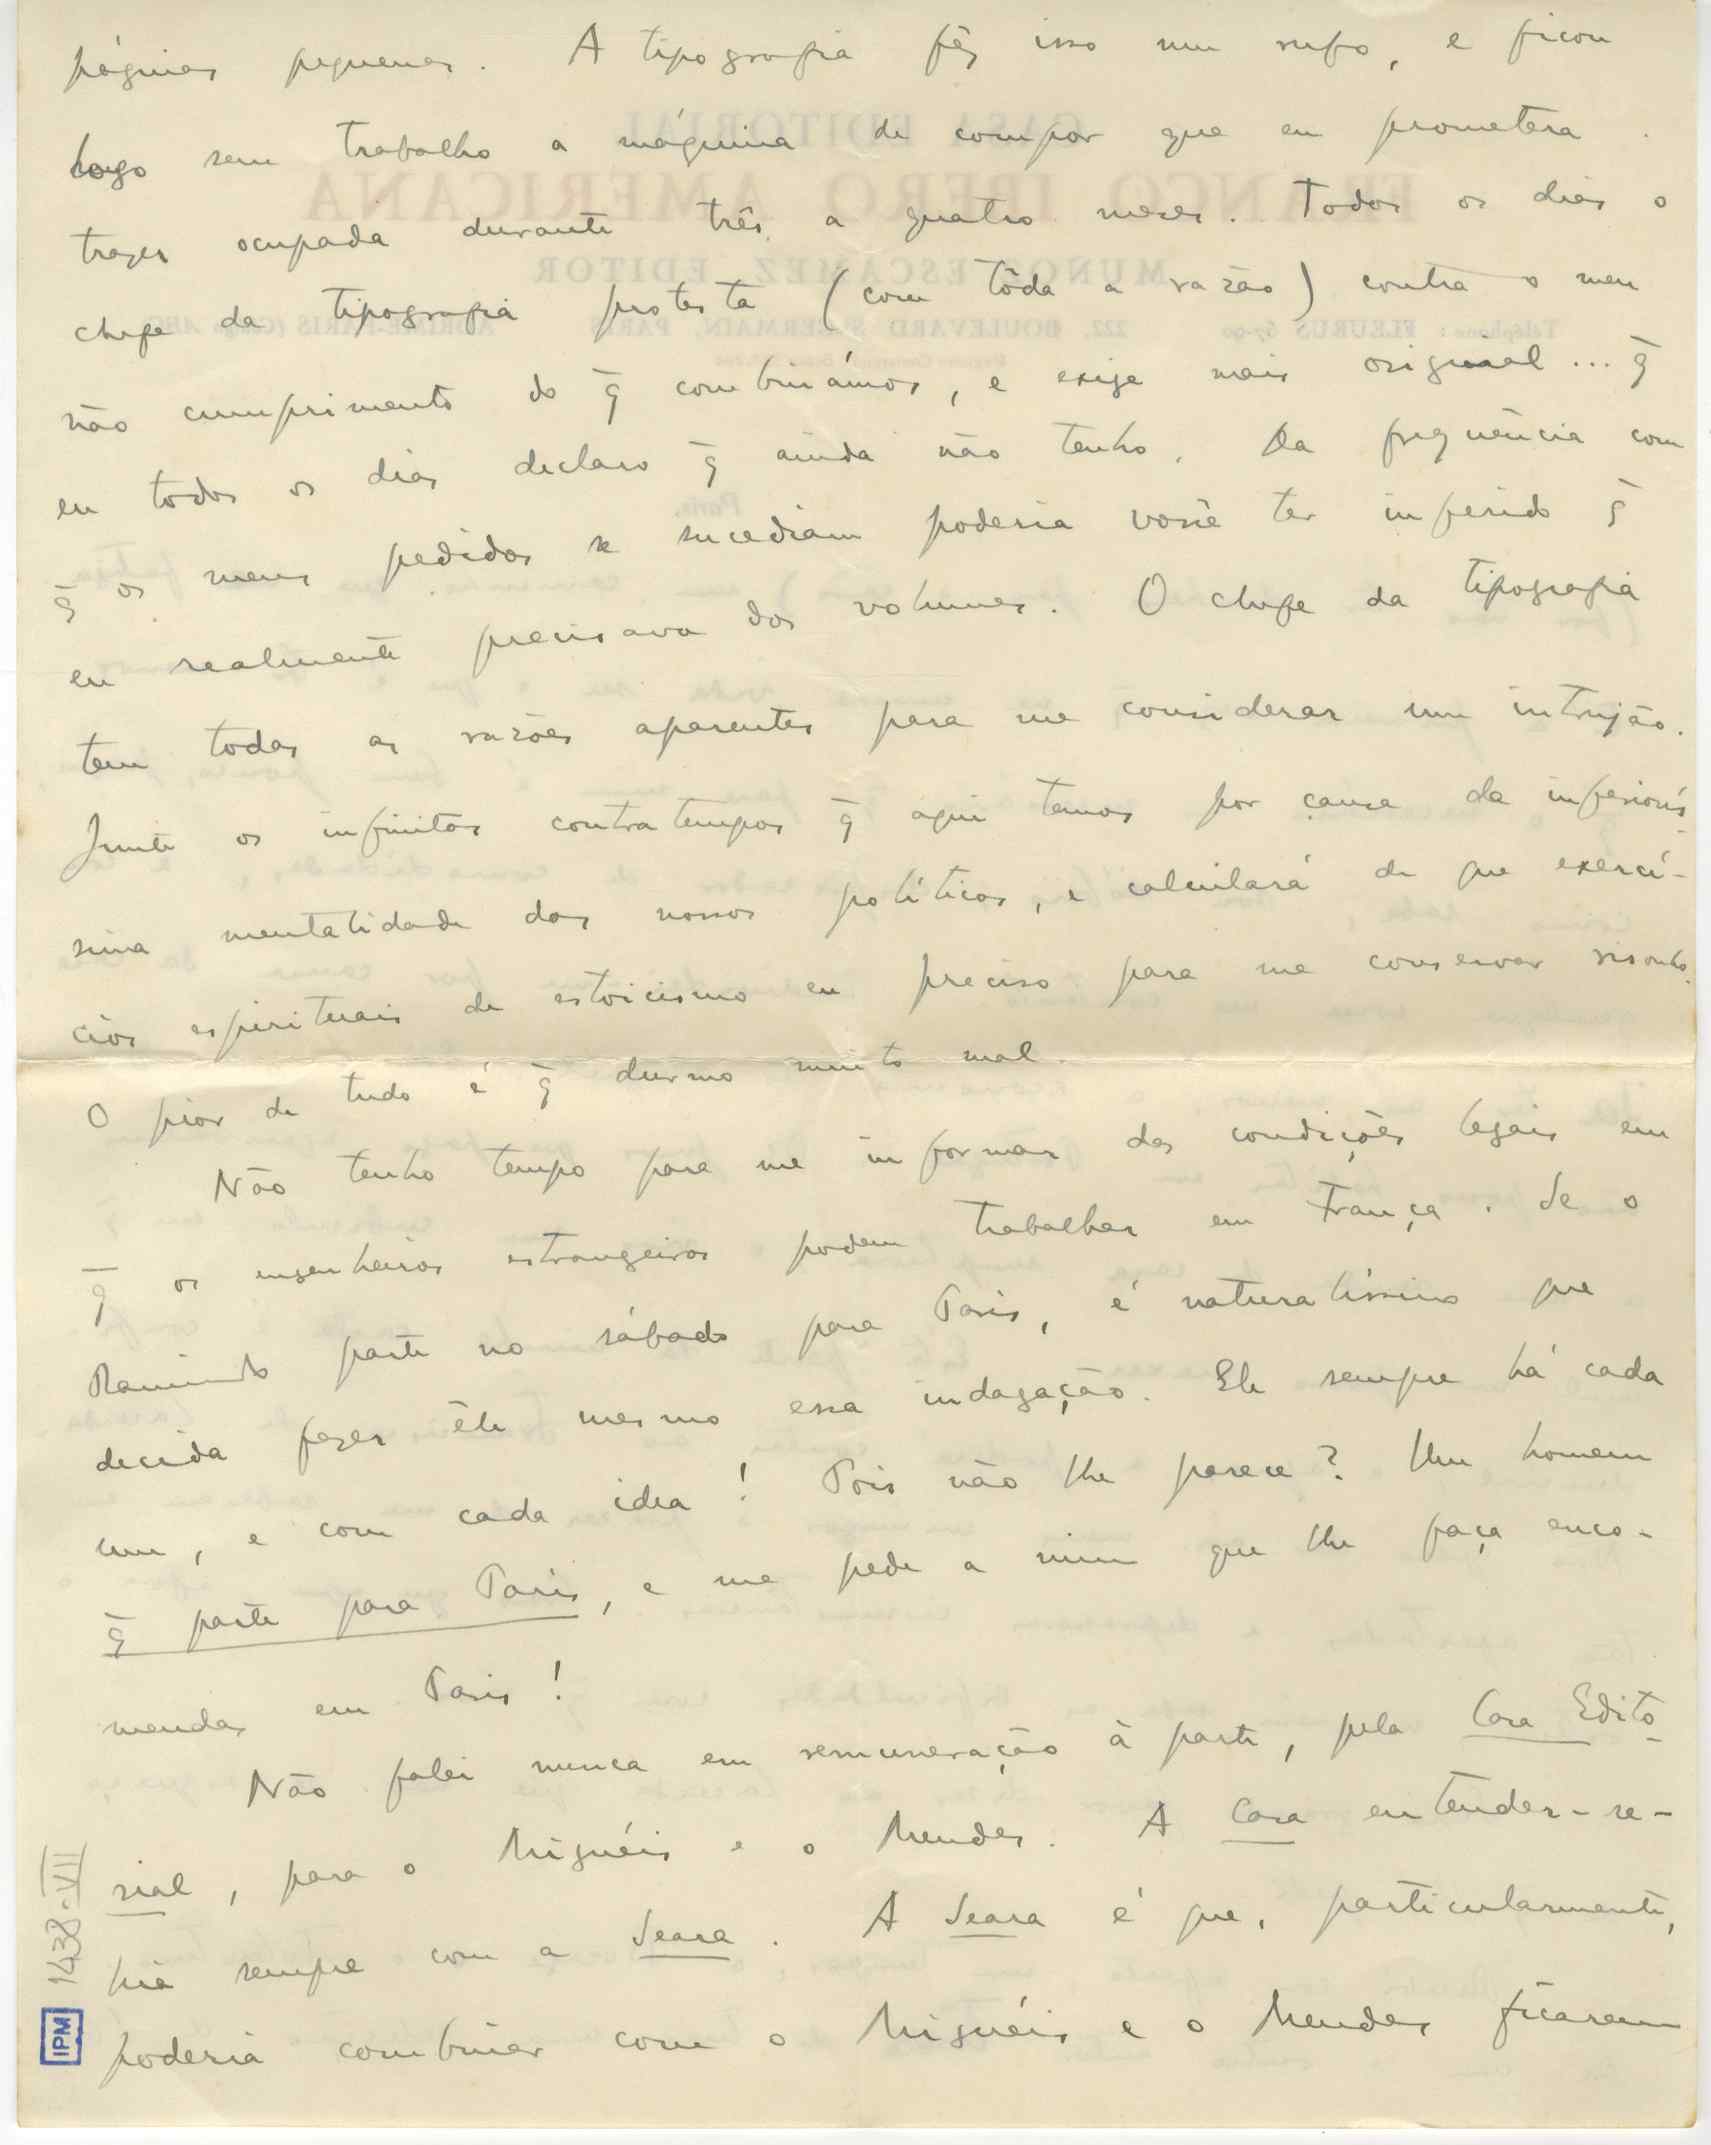 páginas pequenas. A tipografia fêz isso num rufo, e ficou
logo sem trabalho a máquina de compor que eu prometera
trazer ocupada durante três a quatro meses. Todos os dias o
chefe da tipografia protesta (com tôda a razão) contra o meu
não cumprimento do q̄ combinámos, e exige mais original... q̄
eu todos os dias declaro q̄ ainda não tenho. Da freqüência com
q̄ os meus pedidos se sucediam poderia você ter inferido q̄
eu realmente precisava dos volumes. O chefe da tipografia
tem todas as razões aparentes para me considerar um intrujão.
Junte os infinitos contratempos q̄ aqui temos por causa da inferiorís-
sima mentalidade dos nossos políticos, e calculará de que exercí-
cios espirituais de estoicismo eu preciso para me conservar risonho.
O pior de tudo é q̄ durmo muito mal.
Não tenho tempo para me informar das condições legais em
q̄ os engenheiros estrangeiros podem trabalhar em França. Se o
Ramiro parte no sábado para Paris, é naturalíssimo que
decida fazer êle mesmo essa indagação. Ele sempre há cada
um, e com cada idea! Pois não lhe parece? Um homem
q̄ parte para Paris, e me pede a mim que lhe faça enco-
mendas em Paris!
Não falei nunca em remuneração à parte, pela Casa Edito-
rial, para o Miguéis e o Mendes. A Casa entender-se-
hia sempre com a Seara. A Seara é que, particularmente,
poderia combinar com o Miguéis e o Mendes ficarem
1438-VII
IPM
CASA EDITORIAL
FRANCO IBERO AMERICANA
MUNOZ ESCAMEZ, EDITOR
Téléphone: FLEURUS 67-90 222, BOULEVARD St-GERMAIN, PARIS
Paris,